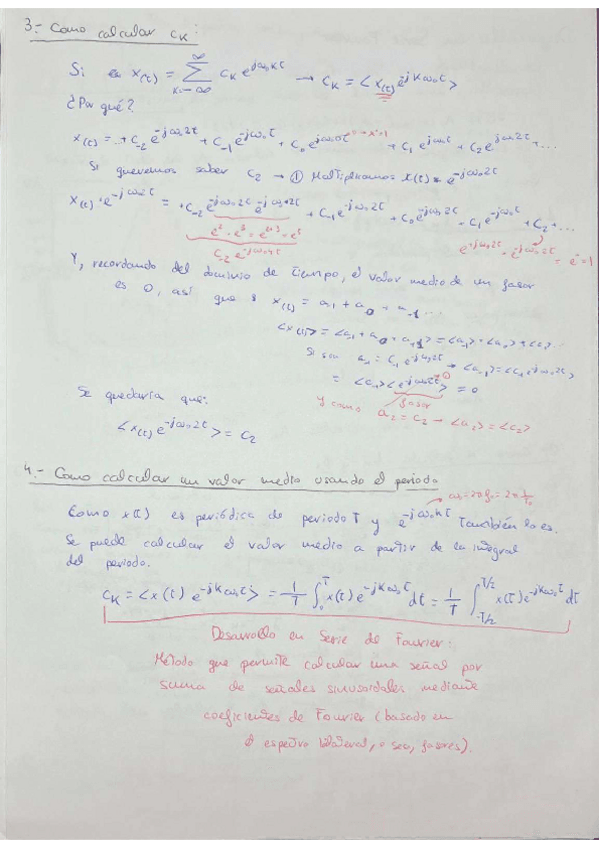 3.- Como calcular cₖ:
Si en x(t) = Σ_{k=-∞}^{∞} cₖ e^{jω₀kt} → cₖ = <x(t) e^{-jkω₀t}>
¿Por qué?
x(t) = ...+ c₋₂ e^{-jω₀2t} + c₋₁ e^{-jω₀t} + c₀ e^{jω₀0t} + c₁ e^{jω₀t} + c₂ e^{jω₀2t} + ...
Si queremos saber c₂ → ① Multiplicamos x(t) * e^{-jω₀2t}
x(t) · e^{-jω₀2t} = + c₋₂ e^{-jω₀2t} e^{-jω₀2t} + c₋₁ e^{-jω₀2t} + c₀ e^{-jω₀2t} - c₁ e^{-jω₀t} + c₂ + ...
c₋₂ e^{-jω₀4t}
Y, recordando del dominio de tiempo, el valor medio de un fasor
es 0, así que x(t) = a₁ + a₀ + a₋₁ ...
<x(t)> = <a₁ + a₀ + a₋₁> = <a₁> + <a₀> +
Si son a₁ = c₁ e^{jω₀2t} → <a₁> = <c₁ e^{jω₀2t}>
= <c₁> <e^{jω₀2t}> = 0
fasor
Se quedaría que:
Y como a₂ = c₂ → <a₂> = <c₂>
<x(t) e^{-jω₀2t}> = c₂
4.- Como calcular un valor medio usando el periodo
ω₀ = 2πf₀ = 2π 1/T₀
Como x(t) es periódica de periodo T y e^{-jω₀kt} también lo es.
Se puede calcular el valor medio a partir de la integral
del periodo.
cₖ = <x(t) e^{-jkω₀t}> = 1/T ∫₀^T x(t) e^{-jkω₀t} dt = 1/T ∫_{-T/2}^{T/2} x(t) e^{-jkω₀t} dt
Desarrollo en Serie de Fourier:
Método que permite calcular una señal por
suma de señales sinusoidales mediante
coeficientes de Fourier (basado en
el espectro bilateral, o sea, fasores).